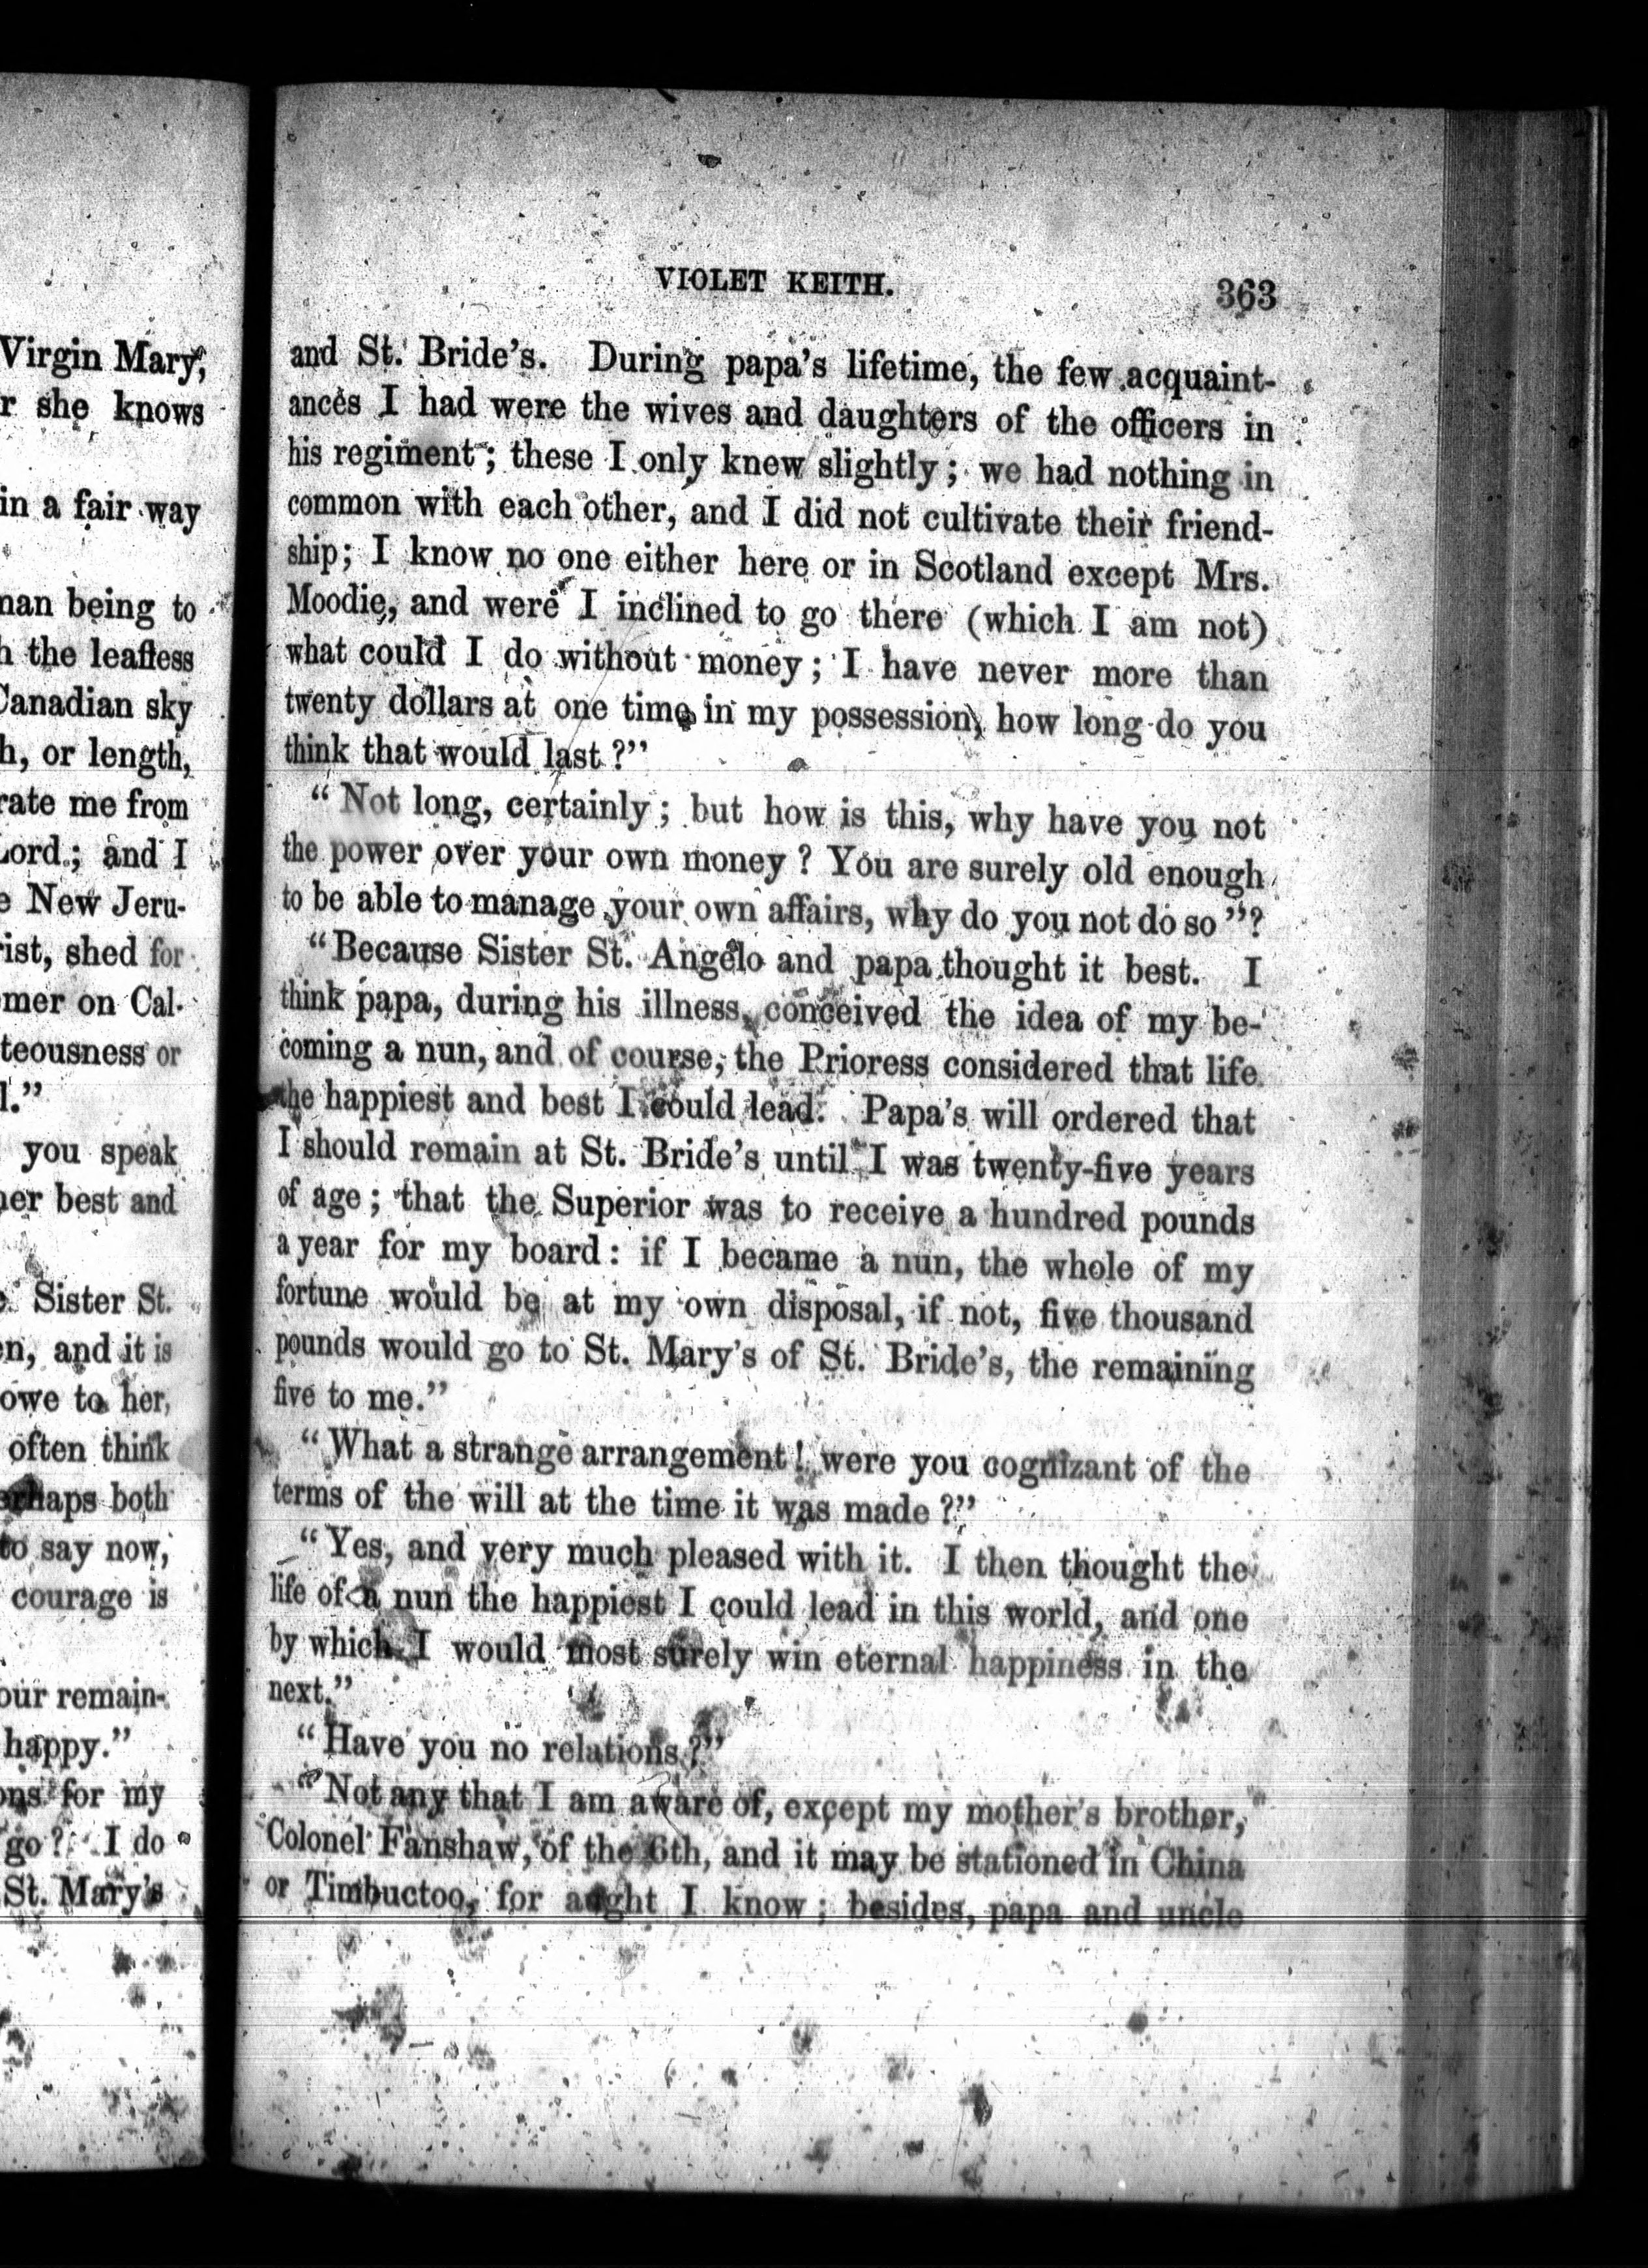 Virgin Mary,
r she knows
in a fair way
man being to
h the leafless
Canadian sky
h, or length,
rate me from
Lord; and I
e New Jeru-
rist, shed for
mer on Cal-
teousness or
l."
you speak
her best and
Sister St.
en, and it is
owe to her,
often think
perhaps both
to say now,
courage is
our remain-
happy."
ons for my
go? I do
St. Mary's
VIOLET KEITH. 363
and St. Bride's. During papa's lifetime, the few acquaint-
ances I had were the wives and daughters of the officers in
his regiment; these I only knew slightly; we had nothing in
common with each other, and I did not cultivate their friend-
ship; I know no one either here or in Scotland except Mrs.
Moodie, and were I inclined to go there (which I am not)
what could I do without money; I have never more than
twenty dollars at one time in my possession, how long do you
think that would last?"
"Not long, certainly; but how is this, why have you not
the power over your own money? You are surely old enough
to be able to manage your own affairs, why do you not do so"?
"Because Sister St. Angelo and papa thought it best. I
think papa, during his illness, conceived the idea of my be-
coming a nun, and of course, the Prioress considered that life
the happiest and best I could lead. Papa's will ordered that
I should remain at St. Bride's until I was twenty-five years
of age; that the Superior was to receive a hundred pounds
a year for my board: if I became a nun, the whole of my
fortune would be at my own disposal, if not, five thousand
pounds would go to St. Mary's of St. Bride's, the remaining
five to me."
"What a strange arrangement! were you cognizant of the
terms of the will at the time it was made?"
"Yes, and very much pleased with it. I then thought the
life of a nun the happiest I could lead in this world, and one
by which I would most surely win eternal happiness in the
next."
"Have you no relations?"
"Not any that I am aware of, except my mother's brother,
Colonel Fanshaw, of the 6th, and it may be stationed in China
or Timbuctoo, for aught I know; besides, papa and uncle